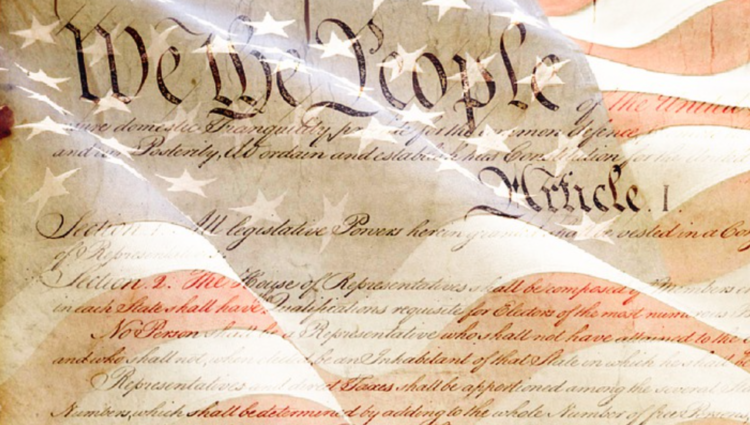 We the People of the United
ure domestic Tranquility, provide for the common defence,
and our Posterity, do ordain and establish this Constitution for the United
Article. I.
Section. 1. All legislative Powers herein granted shall be vested in a Con
of Representatives.
Section. 2. The House of Representatives shall be composed of Members
in each State shall have Qualifications requisite for Electors of the most numerous
No Person shall be a Representative who shall not have attained to the
and who shall not, when elected, be an Inhabitant of that State in which he shall be
Representatives and direct Taxes shall be apportioned among the several
Numbers, which shall be determined by adding to the whole Number of free Persons,